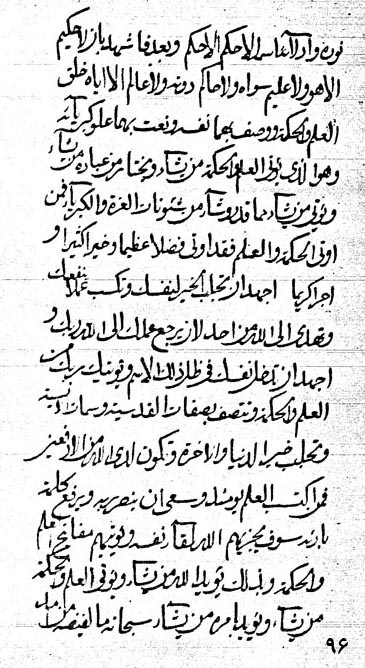 نوره وار الآغاس الاحكم الاحكم وبعد فاشهد بان لا حكيم
الا هو ولا عليم سواه ولا حاكم دونه ولا عالم الا اياه خلق
العلم والحكمة ووصف بهما نفسه ونعت بهما علو كبريائه
وهو الذي يؤتي العلم والحكمة من يشاء ويختار من عباده من يشاء
ويؤتي من يشاء مما قدر وشاء من شئونات العزة والكبرياء فمن
اوتي الحكمة والعلم فقد اوتي فضلا عظيما وخيرا كثيرا و
اجرا كريما اجهد ان تجلب الخير لنفسك وتكسب عملا ينفعك
وتهدي الى الله من احد لان يرجع عملك الى الله ربك و
اجهد ان تدخل نفسك في ظل ذلك الاسم ويؤتيك ربك من
العلم والحكمة وتتصف بصفات القدسية وسمات
وتجلب خير الدنيا والاخرة وتكون لدى الله من
فمن اكتسب العلم يومئذ وسعى ان ينصر به ويرفع كلمة
بارئه سوف يجزيهم الله بلقاء نفسه ويؤتيهم مفاتيح العلم
والحكمة وبذلك يؤيد الله من يشاء ويؤتي العلم والحكمة
من يشاء ويؤيد بامره من يشاء سبحانه ما من
٩٦